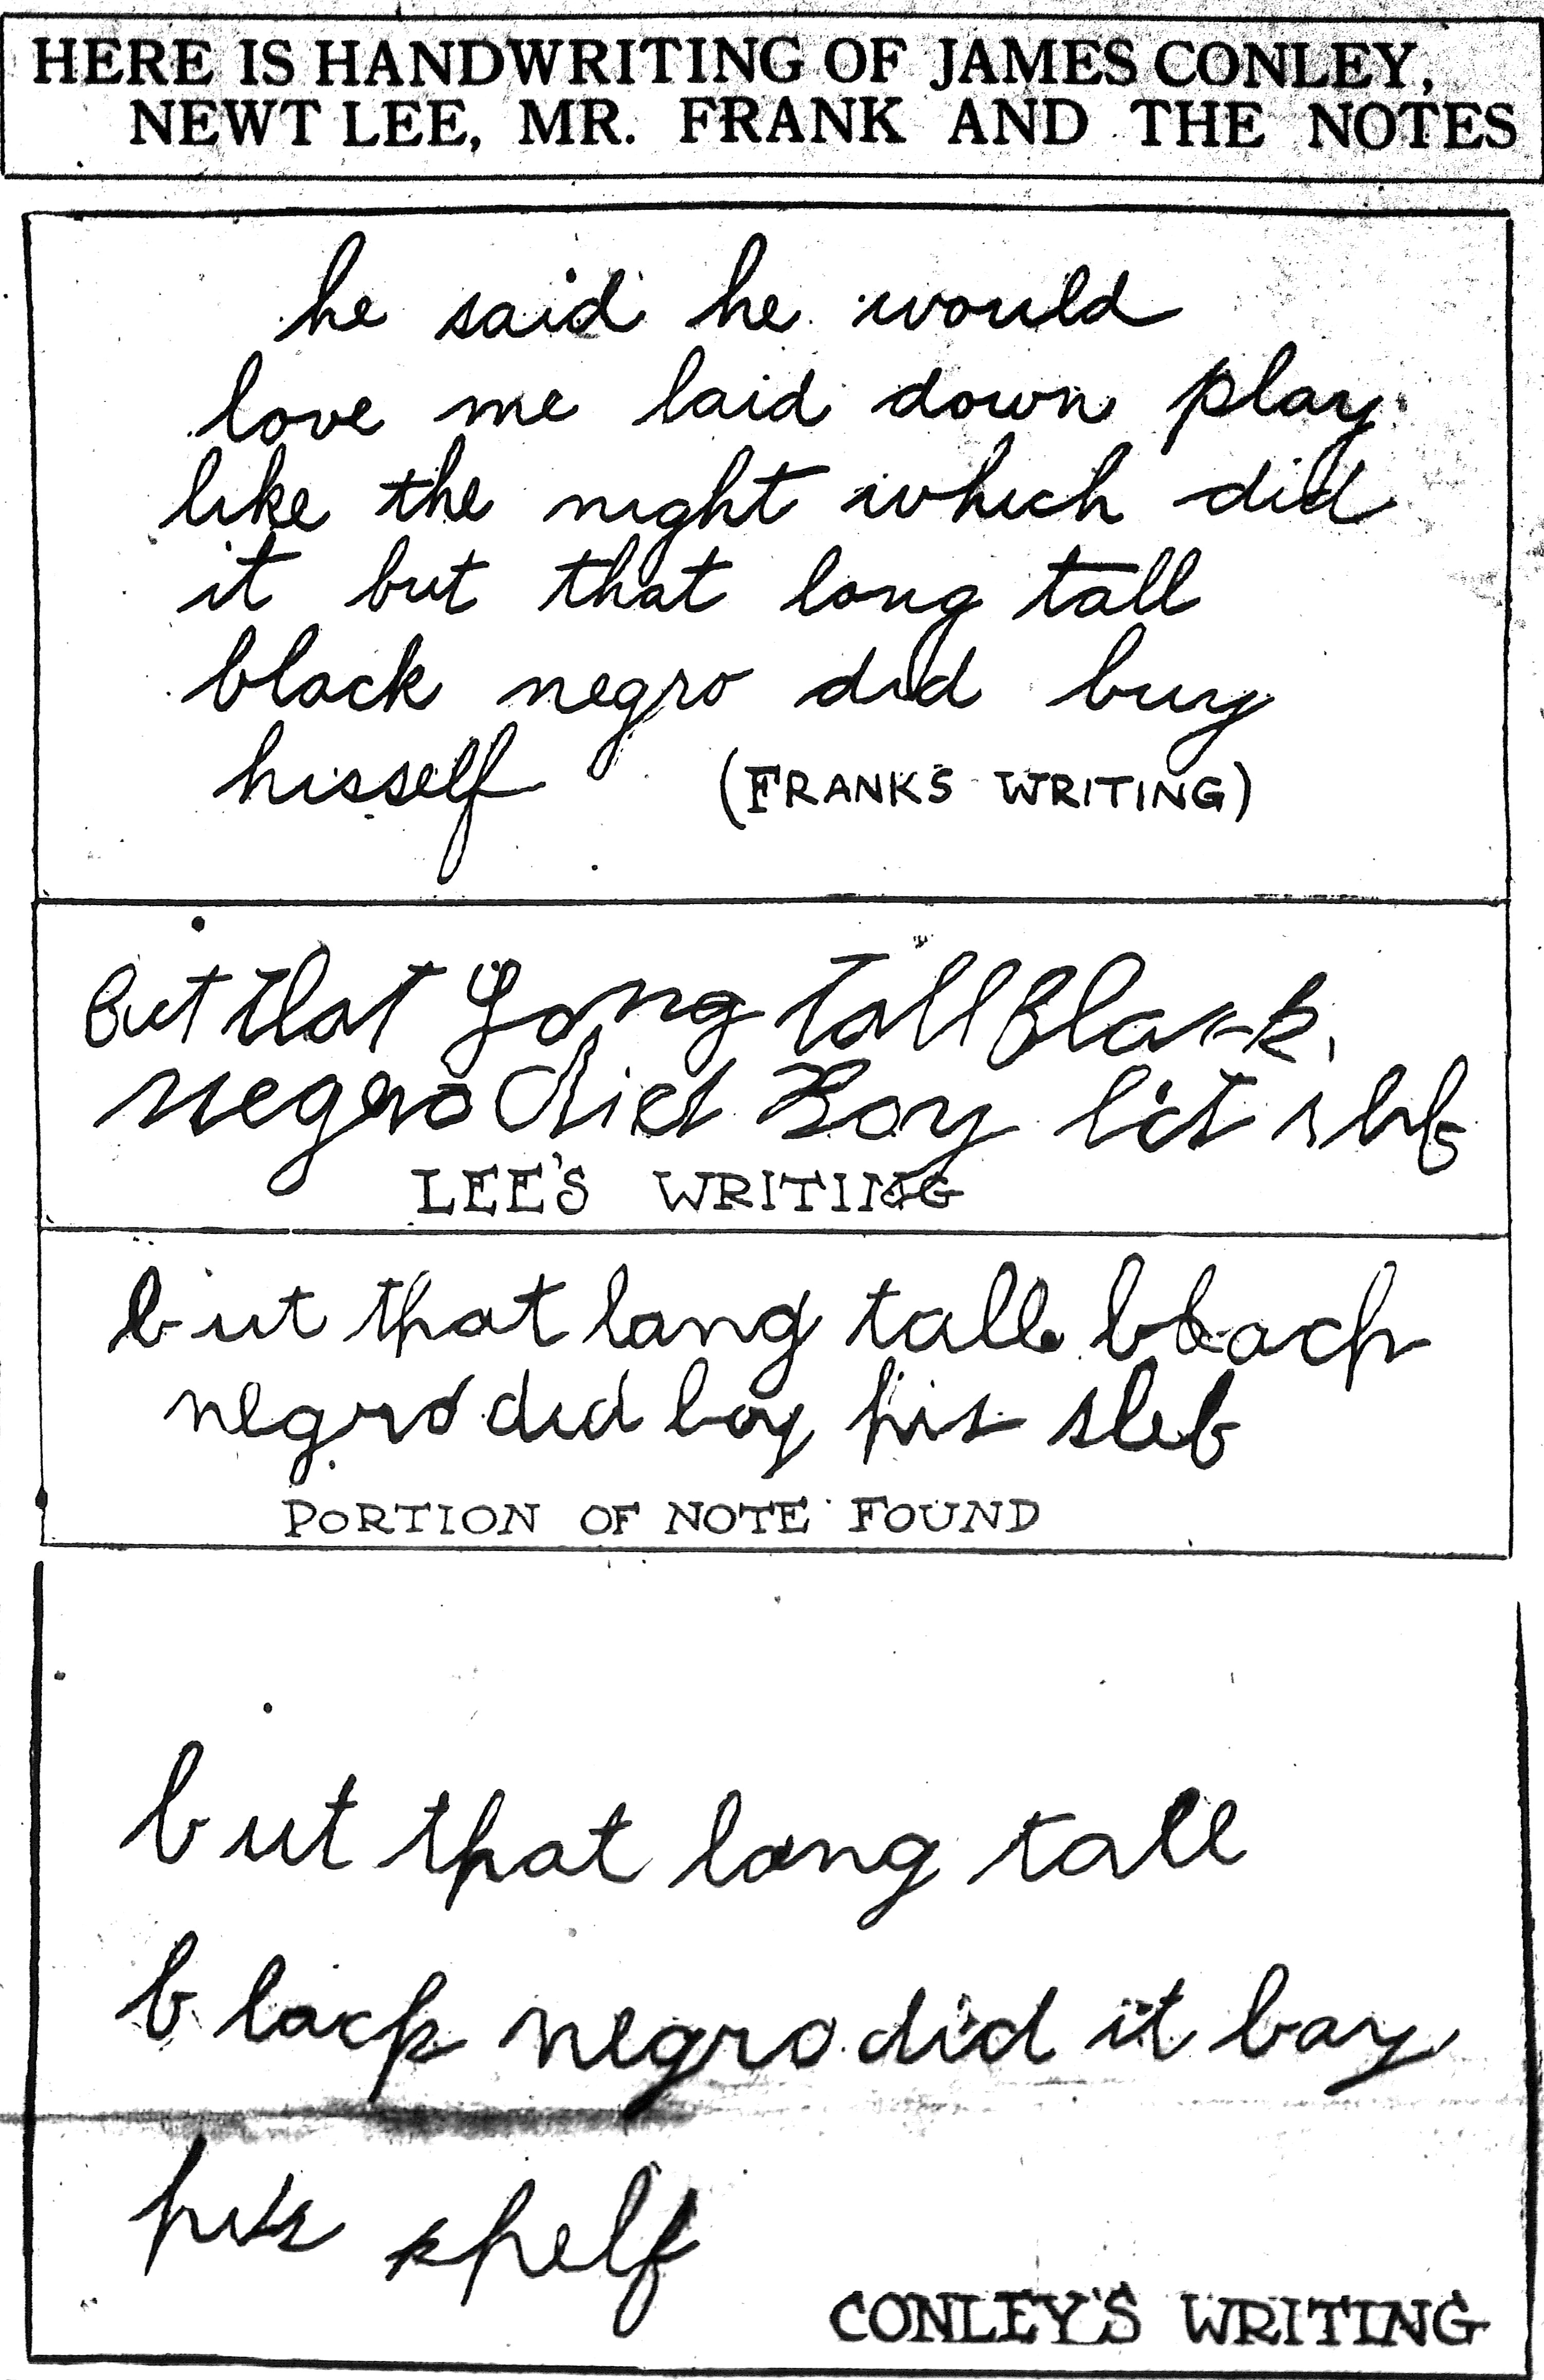 HERE IS HANDWRITING OF JAMES CONLEY,
NEWT LEE, MR. FRANK AND THE NOTES
he said he would
love me laid down play
like the night which did
it but that long tall
black negro did buy
hisself (FRANKS WRITING)
but that Long tall Black
negro did Boy hit slef
LEE'S WRITING
but that long tall black
negro did boy his sleb
PORTION OF NOTE FOUND
but that long tall
black negro did it bay
his shelf
CONLEY'S WRITING